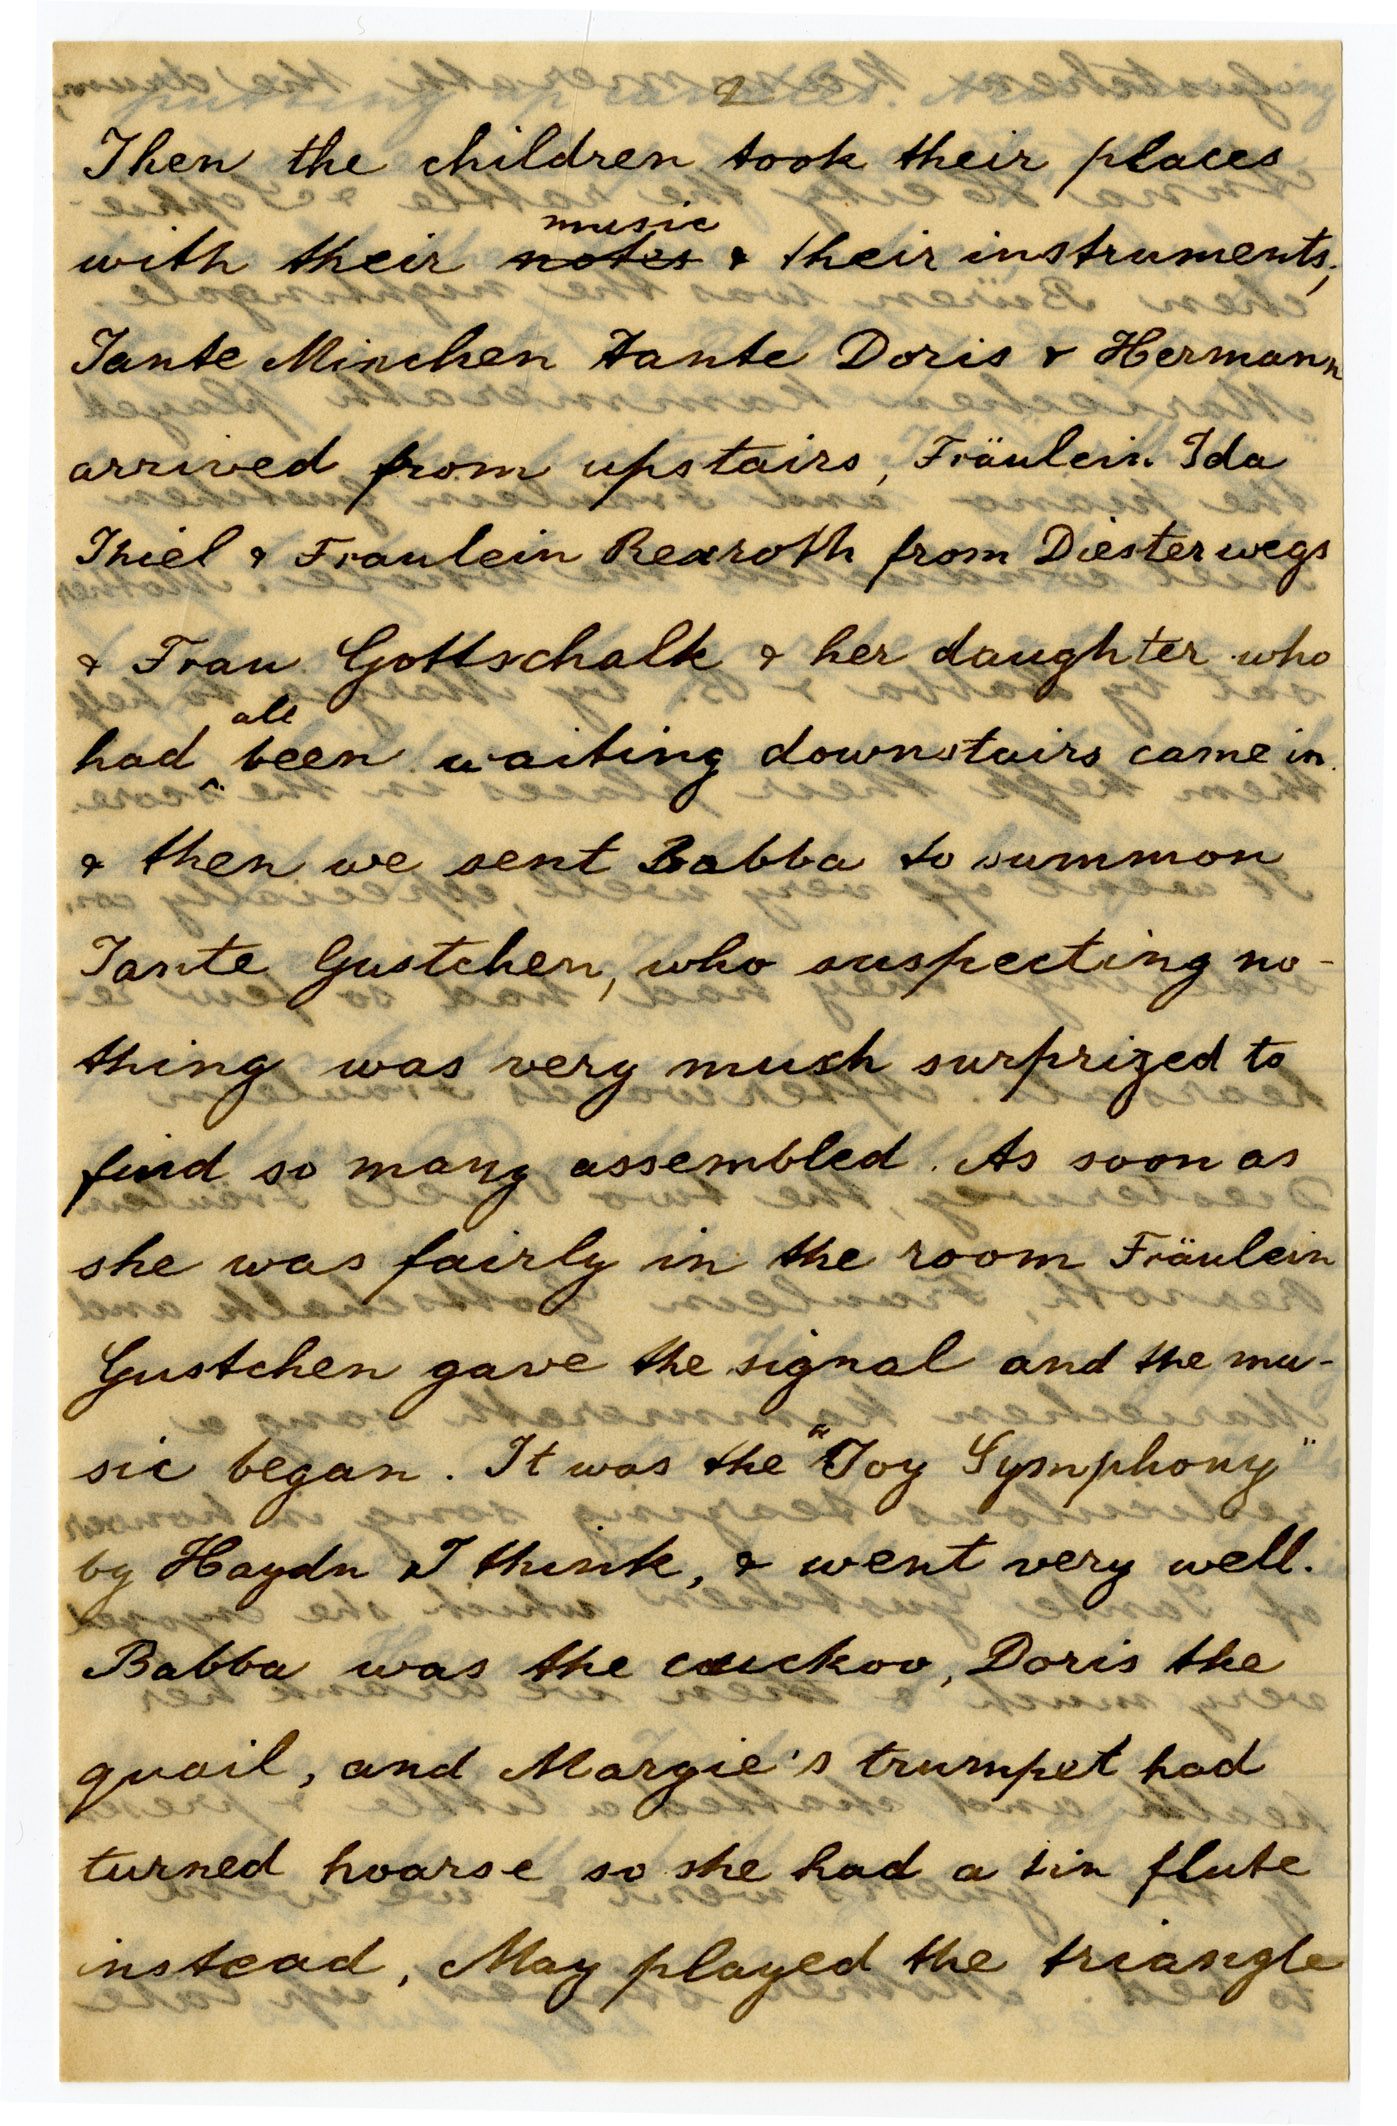 2
Then the children took their places
music
with their notes & their instruments;
Tante Minchen Tante Doris & Hermann
arrived from upstairs, Fräulein Ida
Thiel & Fraulein Rexroth from Diesterwegs
& Frau Gottschalk & her daughter who
all
had ^ been waiting downstairs came in
& then we sent Babba to summon
Tante Gustchen, who suspecting no-
thing was very much surprized to
find so many assembled. As soon as
she was fairly in the room Fräulein
Gustchen gave the signal and the mu-
sic began. It was the "Toy Symphony"
by Haydn I think, & went very well.
Babba was the cuckoo, Doris the
quail, and Margie's trumpet had
turned hoarse so she had a tin flute
instead, May played the triangle